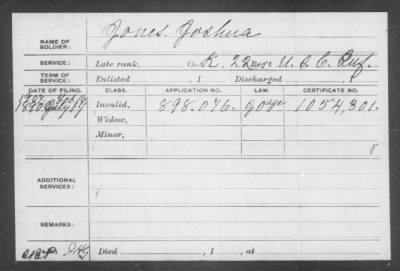 NAME OF SOLDIER: Jones. Joshua
SERVICE: Late rank, Co. K, 22 Regt U. S. C. Inf.
TERM OF SERVICE: Enlisted , 1 Discharged , 1
DATE OF FILING. CLASS. APPLICATION NO. LAW. CERTIFICATE NO.
July 19 Invalid, 898.076. 1054,301.
Widow,
Minor,
ADDITIONAL SERVICES:
REMARKS:
Died , 1 , at